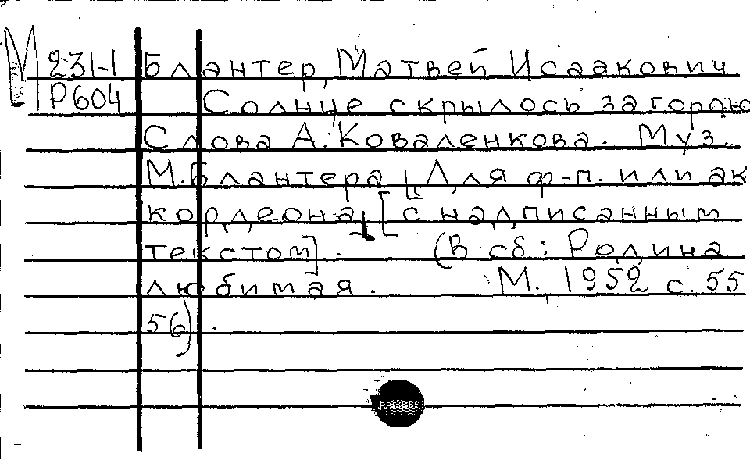 М 231-1 Блантер, Матвей Исаакович
Р604 Солнце скрылось за горою
Слова А. Коваленкова. Муз.
М. Блантера. Для ф-п. или ак
кордеона, [с надписанным
текстом]. (В сб.: Родина
любимая. М., 1952 с. 55
56).